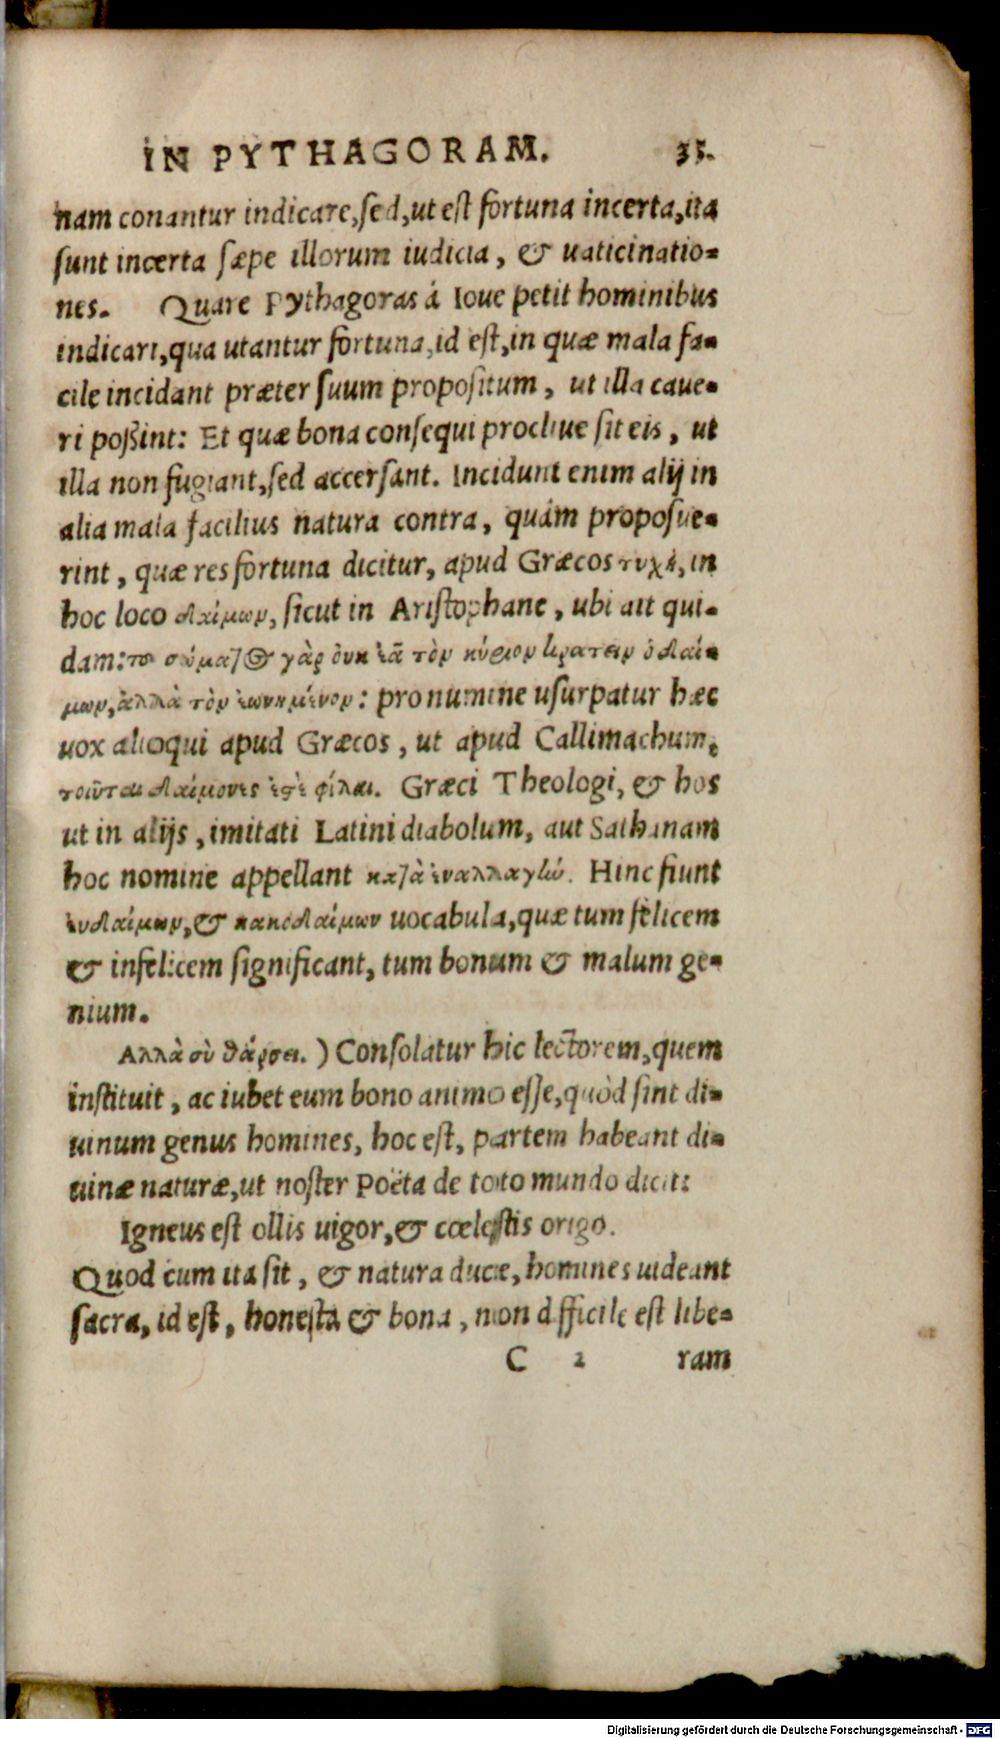 IN PYTHAGORAM. 35.
nam conantur indicare, sed, ut est fortuna incerta, ita
sunt incerta sæpe illorum iudicia, & uaticinatio-
nes. Quare Pythagoras á Ioue petit hominibus
indicari, qua utantur fortuna, id est, in quæ mala fa-
cile incidant præter suum propositum, ut illa caue-
ri poßint: Et quæ bona consequi procliue sit eis, ut
illa non fugiant, sed accersant. Incidunt enim alij in
alia mala facilius natura contra, quám proposue-
rint, quæ res fortuna dicitur, apud Græcos τυχὴ, in
hoc loco δαίμων, sicut in Aristophane, ubi ait qui-
dam: το σώματος γὰρ ὀυκ ἐᾶ τὸν κύριον κρατειν ὁ δαί-
μων, ἀλλὰ τὸν ἐωνημένον: pro numine usurpatur hæc
uox alioqui apud Græcos, ut apud Callimachum,
δαίμονες φίλαι. Græci Theologi, & hos
ut in alijs, imitati Latini diabolum, aut Sathanam
hoc nomine appellant κατὰ ἐναλλαγὴν. Hinc fiunt
ἐυδαίμων, & κακοδαίμων uocabula, quæ tum felicem
& infelicem significant, tum bonum & malum ge-
nium.
Αλλὰ σὺ θάρσει. ) Consolatur hic lectorem, quem
instituit, ac iubet eum bono animo esse, quòd sint di-
uinum genus homines, hoc est, partem habeant di-
uinæ naturæ, ut noster Poëta de toto mundo dicit:
Igneus est ollis uigor, & cœlestis origo.
Quod cum ita sit, & natura duce, homines uideant
sacra, id est, honesta & bona, non difficile est libe-
C 2 ram
Digitalisierung gefördert durch die Deutsche Forschungsgemeinschaft - DFG